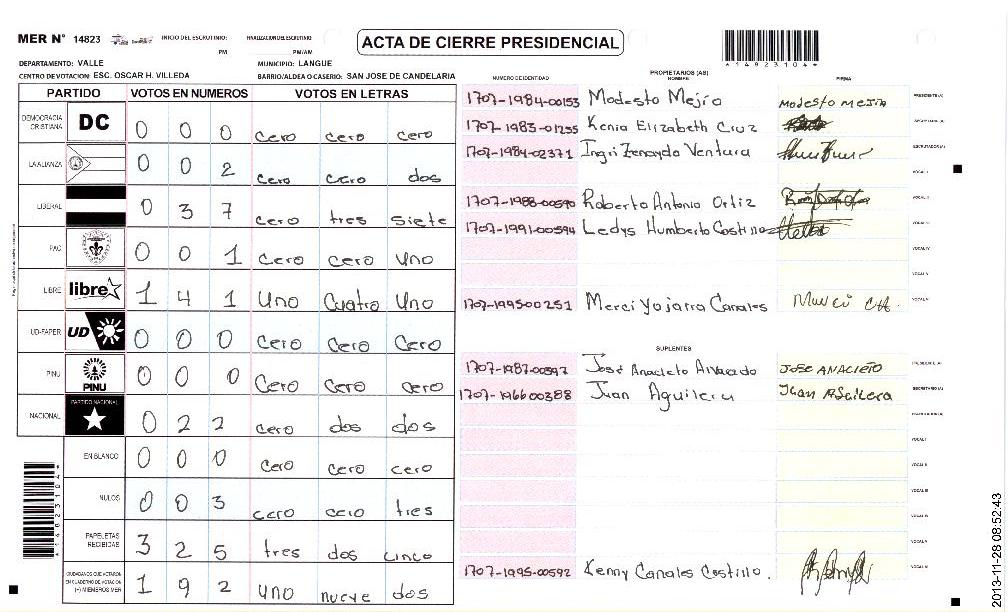 MER N° 14823 INICIO DEL ESCRUTINIO: FINALIZACION DEL ESCRUTINIO:
PM PM/AM
ACTA DE CIERRE PRESIDENCIAL
*14823104*
DEPARTAMENTO: VALLE MUNICIPIO: LANGUE
CENTRO DE VOTACION: ESC. OSCAR H. VILLEDA BARRIO/ALDEA O CASERIO: SAN JOSE DE CANDELARIA
PARTIDO VOTOS EN NUMEROS VOTOS EN LETRAS
DEMOCRACIA CRISTIANA DC 0 0 0 cero cero cero
LA ALIANZA 0 0 2 cero cero dos
LIBERAL 0 3 7 cero tres siete
PAC 0 0 1 cero cero uno
LIBRE libre 1 4 1 uno cuatro uno
UD-FAPER UD 0 0 0 cero cero cero
PINU PINU 0 0 0 cero cero cero
NACIONAL PARTIDO NACIONAL 0 2 2 cero dos dos
EN BLANCO 0 0 0 cero cero cero
NULOS 0 0 3 cero cero tres
PAPELETAS RECIBIDAS 3 2 5 tres dos cinco
CIUDADANOS QUE VOTARON EN CUADERNO DE VOTACION (+) MIEMBROS MER 1 9 2 uno nueve dos
*14823104*
PROPIETARIOS (AS)
NUMERO DE IDENTIDAD NOMBRE FIRMA
1707-1984-00153 Modesto Mejío Modesto mejía PRESIDENTE (A)
1707-1983-01235 Kenia Elizabeth Cruz SECRETARIO (A)
1707-1984-02371 Ingri Zenayda Ventura ESCRUTADOR (A)
VOCAL I
1707-1988-00590 Roberto Antonio Ortiz VOCAL II
1707-1991-00594 Ledys Humberto Costino VOCAL III
VOCAL IV
VOCAL V
1707-1995-00251 Merci Yajarra Canales VOCAL VI
SUPLENTES
1707-1987-00597 José Anacleto Alvarado JOSE ANACLETO PRESIDENTE (A)
1707-1966-00388 Juan Aguilera Juan Aguilera SECRETARIO (A)
ESCRUTADOR (A)
VOCAL I
VOCAL II
VOCAL III
VOCAL IV
VOCAL V
1707-1995-00592 Kenny Canales Costillo. VOCAL VI
2013-11-28 08:52:43